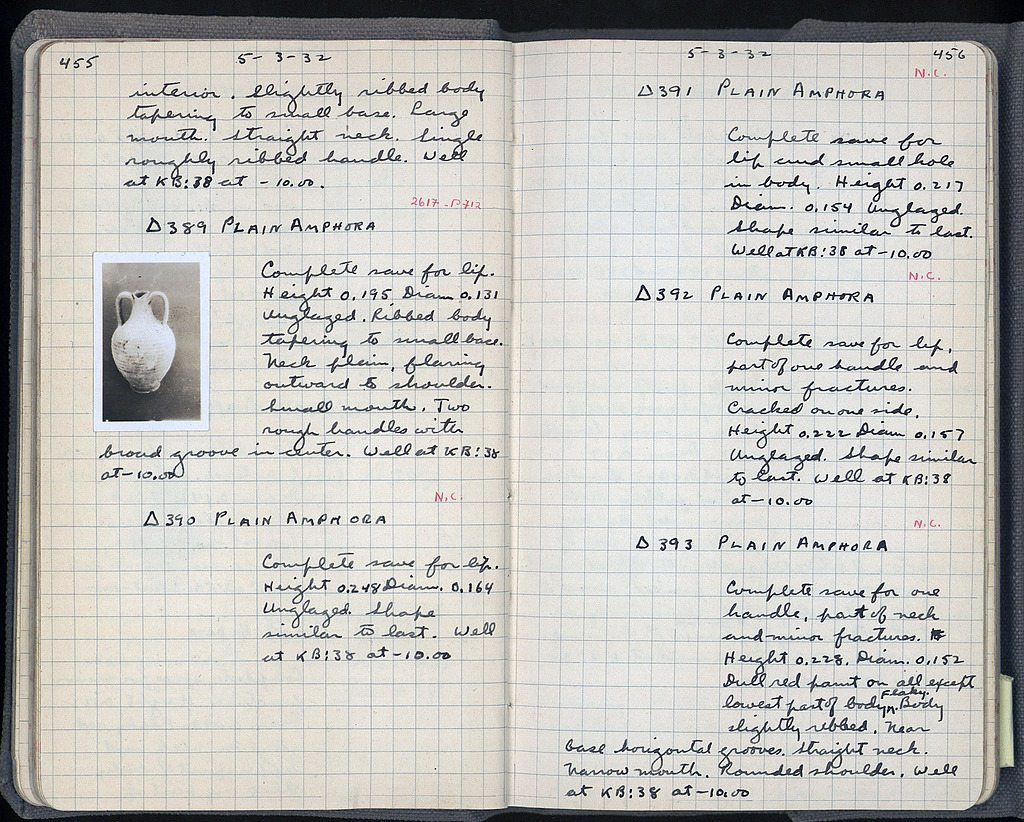 455
5-3-32
interior. Slightly ribbed body
tapering to small base. Large
mouth. Straight neck. Single
roughly ribbed handle. Well
at KB:38 at -10.00.
2617-P712
Δ389 PLAIN AMPHORA
Complete save for lip.
Height 0.195. Diam 0.131
Unglazed. Ribbed body
tapering to small base.
Neck plain, flaring
outward to shoulder.
Small mouth. Two
rough handles with
broad groove in center. Well at KB:38
at -10.00
N.C.
Δ390 PLAIN AMPHORA
Complete save for lip.
Height 0.248 Diam. 0.164
Unglazed. Shape
similar to last. Well
at KB:38 at -10.00
5-3-32
456
N.C.
Δ391 PLAIN AMPHORA
Complete save for
lip and small hole
in body. Height 0.217
Diam. 0.154 Unglazed.
Shape similar to last.
Well at KB:38 at -10.00
N.C.
Δ392 PLAIN AMPHORA
Complete save for lip,
part of one handle and
minor fractures.
Cracked on one side.
Height 0.222 Diam 0.157
Unglazed. Shape similar
to last. Well at KB:38
at -10.00
N.C.
Δ393 PLAIN AMPHORA
Complete save for one
handle, part of neck
and minor fractures.
Height 0.228. Diam. 0.152
Dull red paint on all except
Flaky.
lowest part of body. Body
slightly ribbed. Near
base horizontal grooves. Straight neck.
Narrow mouth. Rounded shoulder. Well
at KB:38 at -10.00